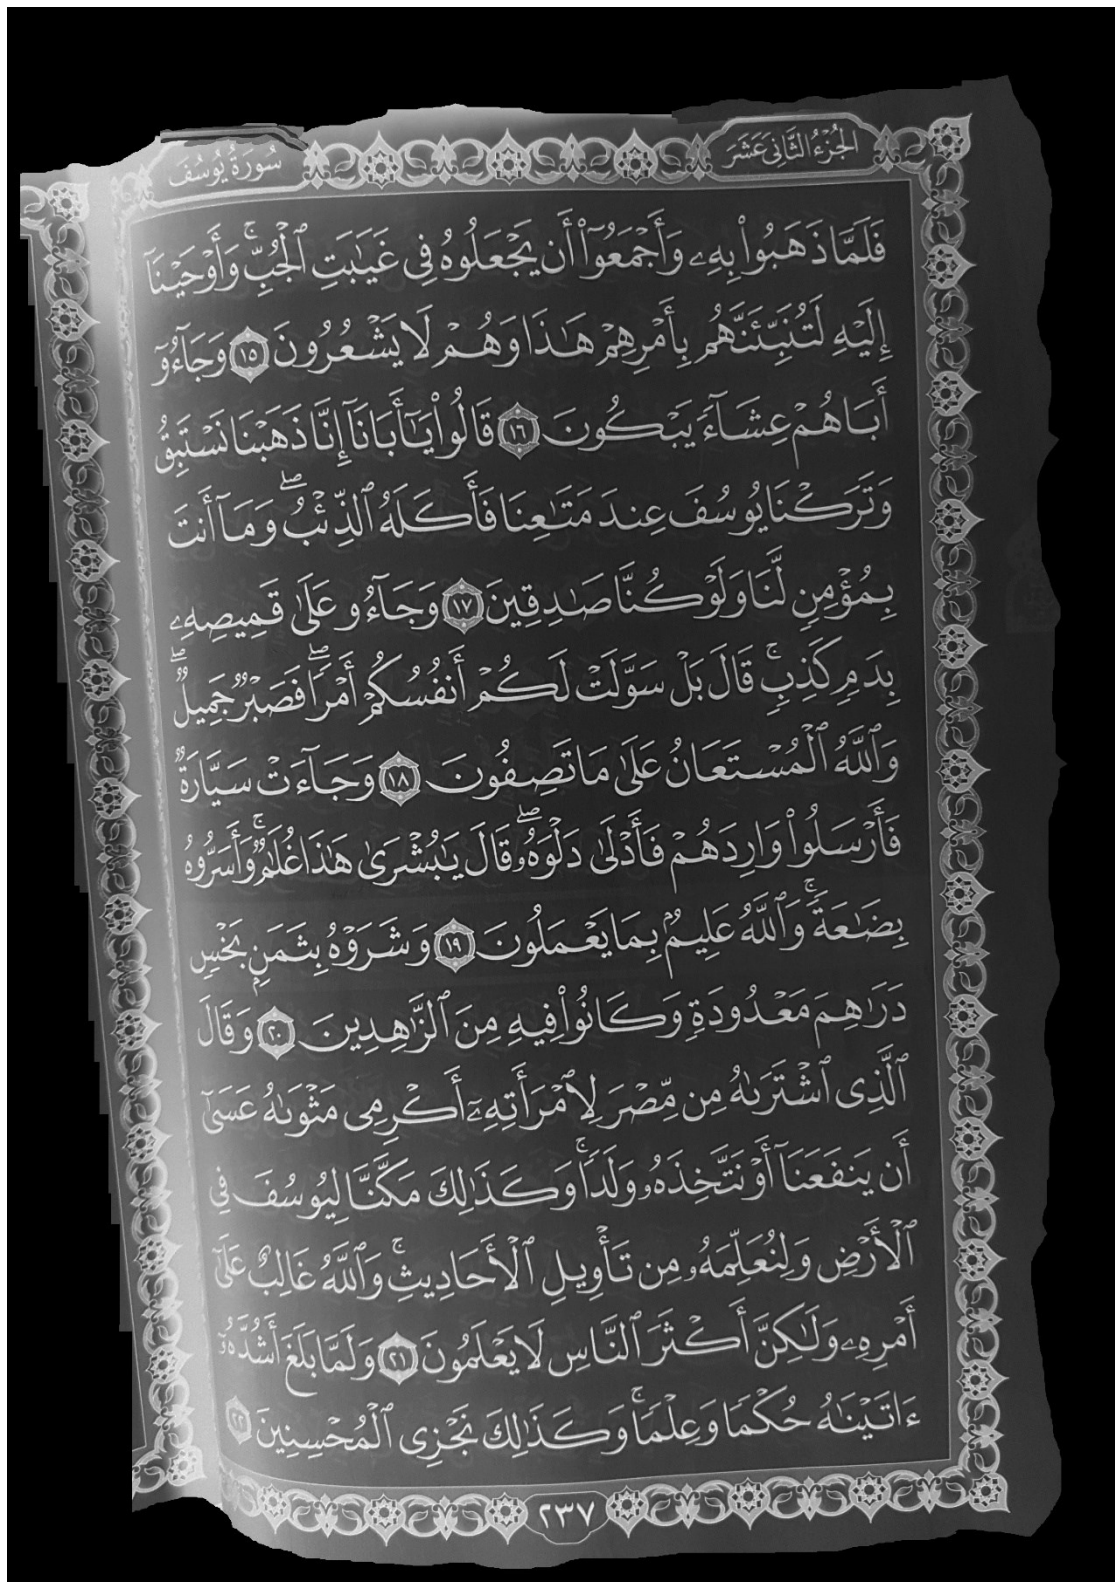 سُورَةُ يُوسُفَ
الجُزْءُ الثَّانِي عَشَرَ
فَلَمَّا ذَهَبُوا۟ بِهِۦ وَأَجْمَعُوٓا۟ أَن يَجْعَلُوهُ فِى غَيَـٰبَتِ ٱلْجُبِّ ۚ وَأَوْحَيْنَآ
إِلَيْهِ لَتُنَبِّئَنَّهُم بِأَمْرِهِمْ هَـٰذَا وَهُمْ لَا يَشْعُرُونَ ١٥ وَجَآءُوٓ
أَبَاهُمْ عِشَآءً يَبْكُونَ ١٦ قَالُوا۟ يَـٰٓأَبَانَآ إِنَّا ذَهَبْنَا نَسْتَبِقُ
وَتَرَكْنَا يُوسُفَ عِندَ مَتَـٰعِنَا فَأَكَلَهُ ٱلذِّئْبُ ۖ وَمَآ أَنتَ
بِمُؤْمِنٍ لَّنَا وَلَوْ كُنَّا صَـٰدِقِينَ ١٧ وَجَآءُو عَلَىٰ قَمِيصِهِۦ
بِدَمٍ كَذِبٍ ۚ قَالَ بَلْ سَوَّلَتْ لَكُمْ أَنفُسُكُمْ أَمْرًا ۖ فَصَبْرٌ جَمِيلٌ ۖ
وَٱللَّهُ ٱلْمُسْتَعَانُ عَلَىٰ مَا تَصِفُونَ ١٨ وَجَآءَتْ سَيَّارَةٌ
فَأَرْسَلُوا۟ وَارِدَهُمْ فَأَدْلَىٰ دَلْوَهُۥ ۖ قَالَ يَـٰبُشْرَىٰ هَـٰذَا غُلَـٰمٌ ۚ وَأَسَرُّوهُ
بِضَـٰعَةً ۚ وَٱللَّهُ عَلِيمٌۢ بِمَا يَعْمَلُونَ ١٩ وَشَرَوْهُ بِثَمَنٍۭ بَخْسٍ
دَرَٰهِمَ مَعْدُودَةٍ وَكَانُوا۟ فِيهِ مِنَ ٱلزَّٰهِدِينَ ٢٠ وَقَالَ
ٱلَّذِى ٱشْتَرَىٰهُ مِن مِّصْرَ لِٱمْرَأَتِهِۦٓ أَكْرِمِى مَثْوَىٰهُ عَسَىٰٓ
أَن يَنفَعَنَآ أَوْ نَتَّخِذَهُۥ وَلَدًا ۚ وَكَذَٰلِكَ مَكَّنَّا لِيُوسُفَ فِى
ٱلْأَرْضِ وَلِنُعَلِّمَهُۥ مِن تَأْوِيلِ ٱلْأَحَادِيثِ ۚ وَٱللَّهُ غَالِبٌ عَلَىٰٓ
أَمْرِهِۦ وَلَـٰكِنَّ أَكْثَرَ ٱلنَّاسِ لَا يَعْلَمُونَ ٢١ وَلَمَّا بَلَغَ أَشُدَّهُۥٓ
ءَاتَيْنَـٰهُ حُكْمًا وَعِلْمًا ۚ وَكَذَٰلِكَ نَجْزِى ٱلْمُحْسِنِينَ ٢٢
٢٣٧